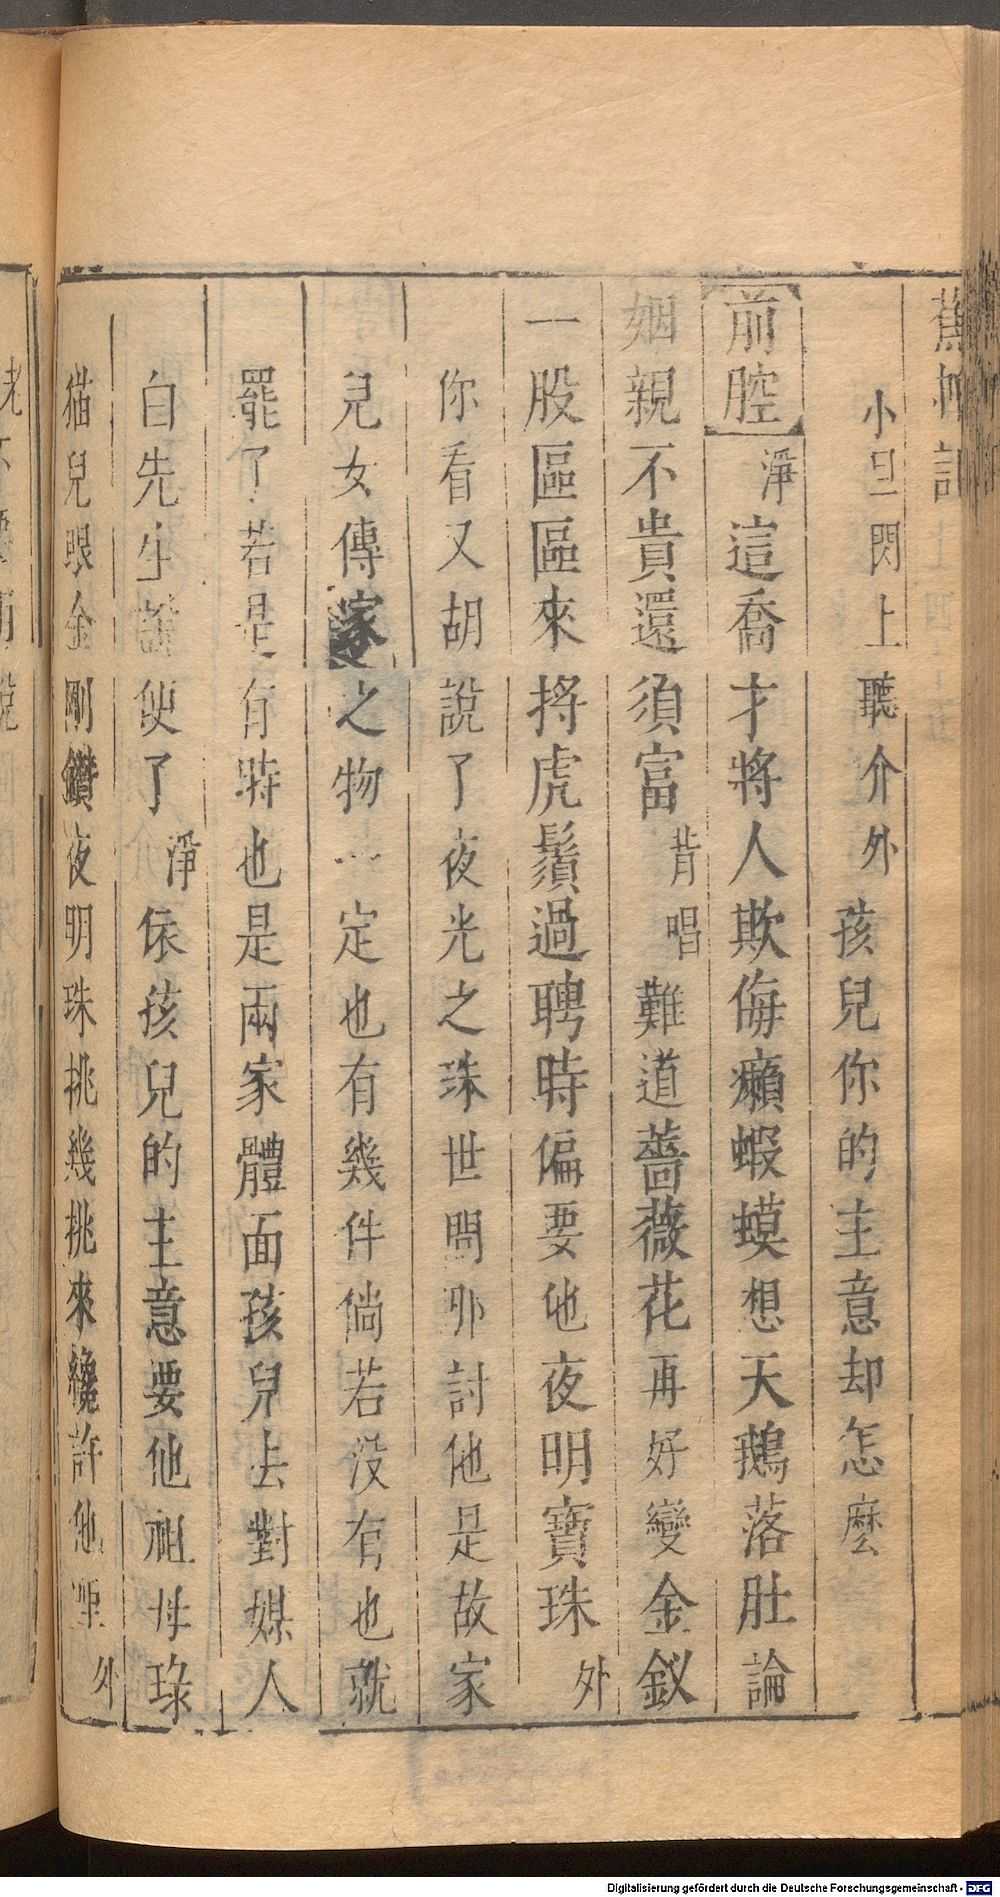 蕉帕記
小旦閃上聽介外孩兒你的主意却怎麽
前腔淨這喬才將人欺侮癩蝦蟆想天鵝落肚論
姻親不貴還須富背唱難道薔薇花再好變金釵
一股區區來捋虎鬚過聘時偏要他夜明寶珠外
你看又胡說了夜光之珠世間那討他是故家
兒女傳家之物一定也有幾件倘若没有也就
罷了若是有時也是兩家體面孩兒去對媒人
白先生說便了淨依孩兒的主意要他祖母琭
猫兒眼金剛鑽夜明珠挑幾挑來纔許他哩外
Digitalisierung gefördert durch die Deutsche Forschungsgemeinschaft - DFG